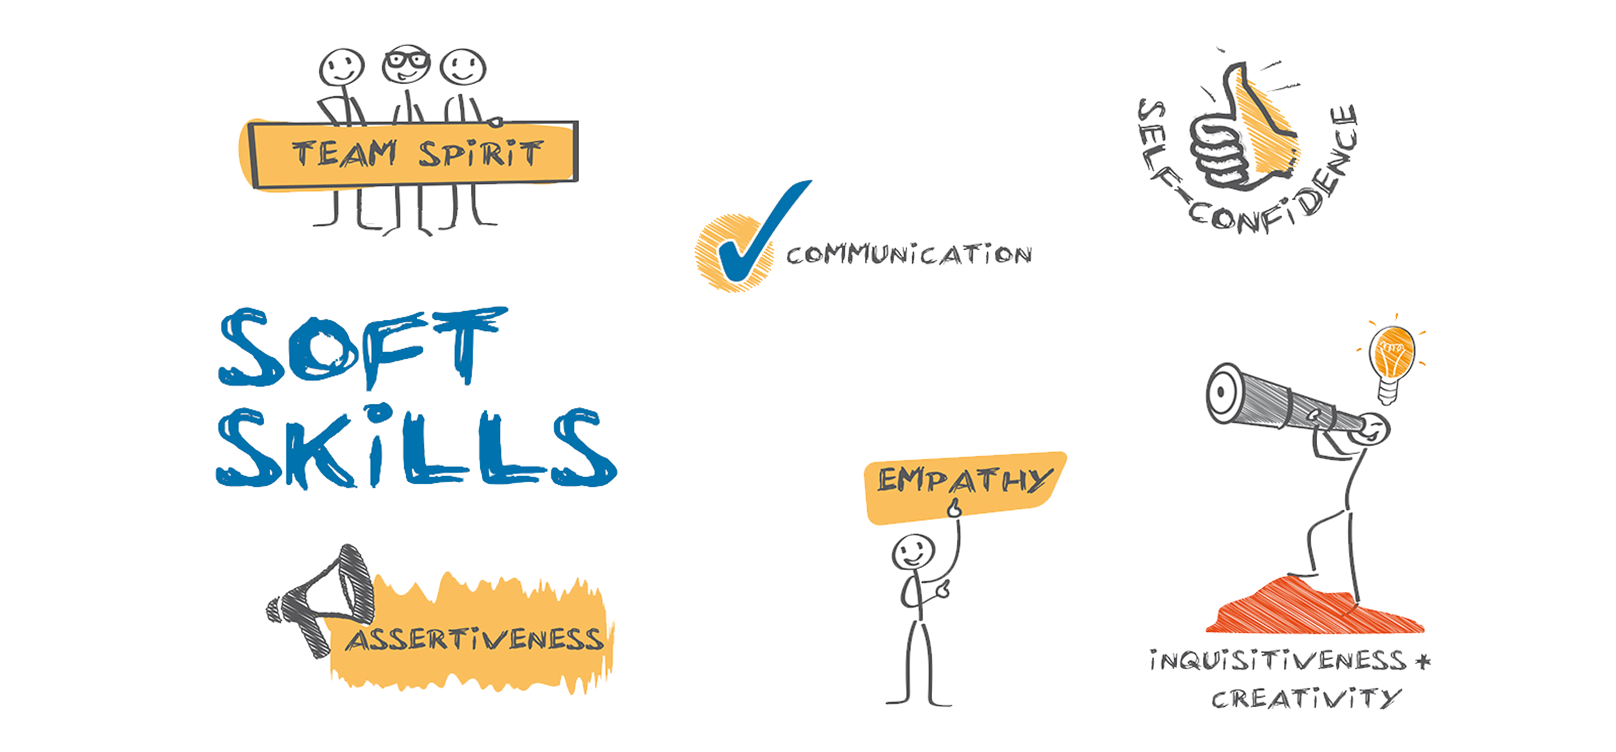 TEAM SPIRIT
COMMUNICATION
SELF-CONFIDENCE
SOFT
SKILLS
EMPATHY
ASSERTIVENESS
INQUISITIVENESS *
CREATIVITY